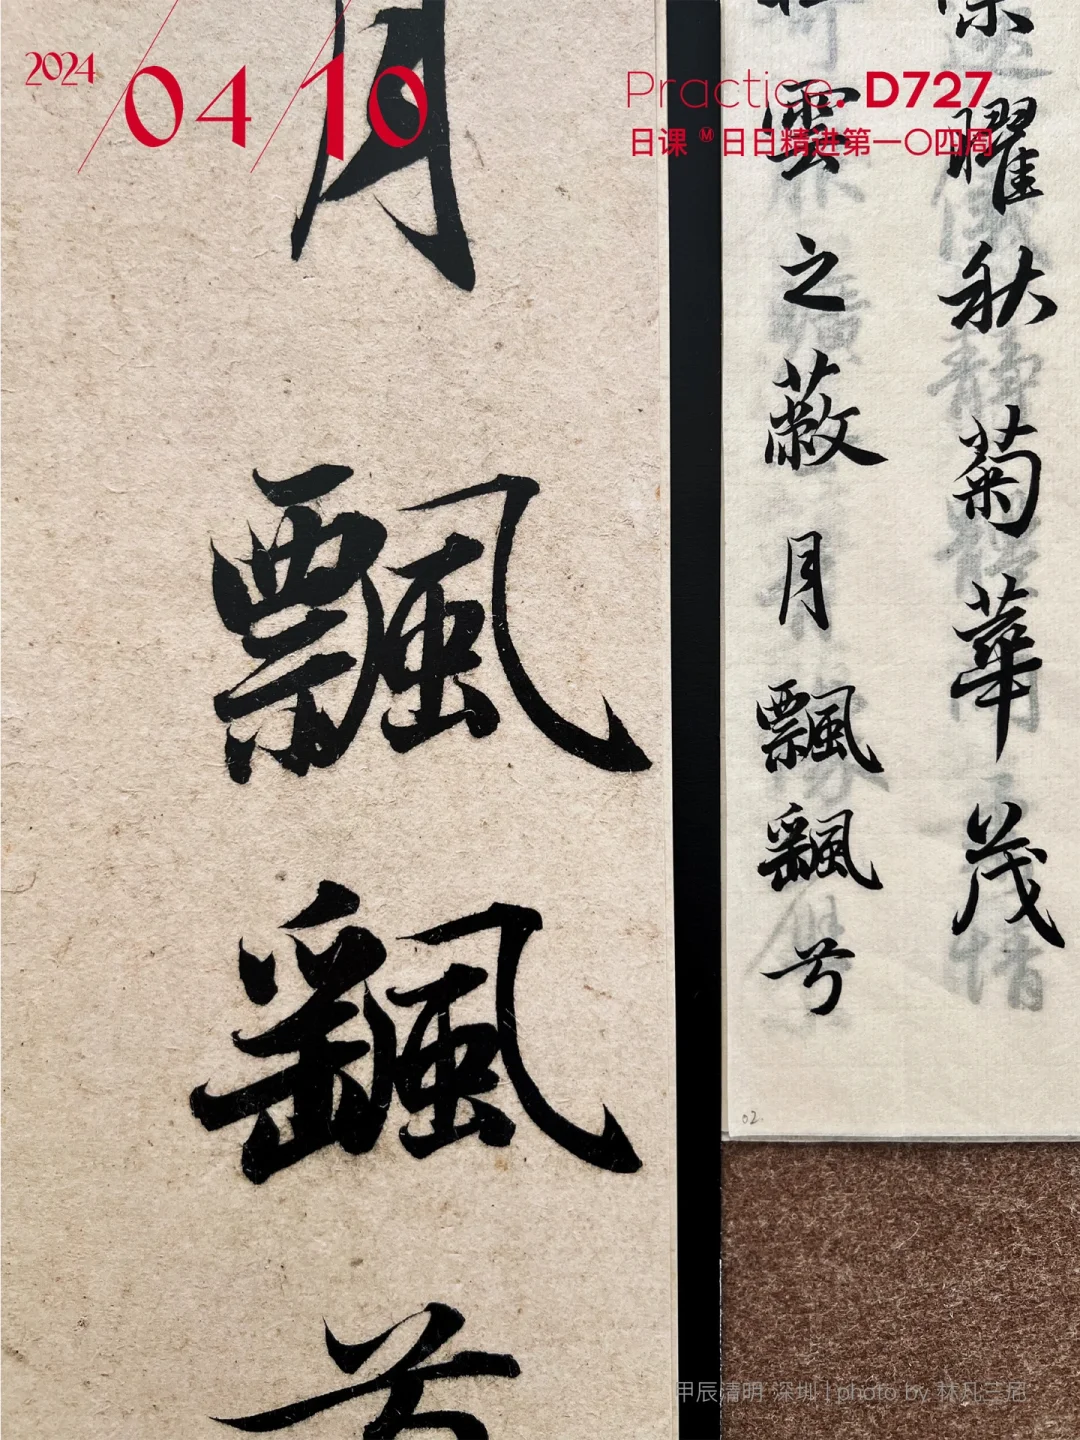 2024 04/10
Practice. D727
日课 Ⓜ 日日精进第一〇四周
曜秋菊華茂
雲之蔽月飄颻兮
月飄颻兮
02
甲辰清明 深圳 | photo by 林凡三石